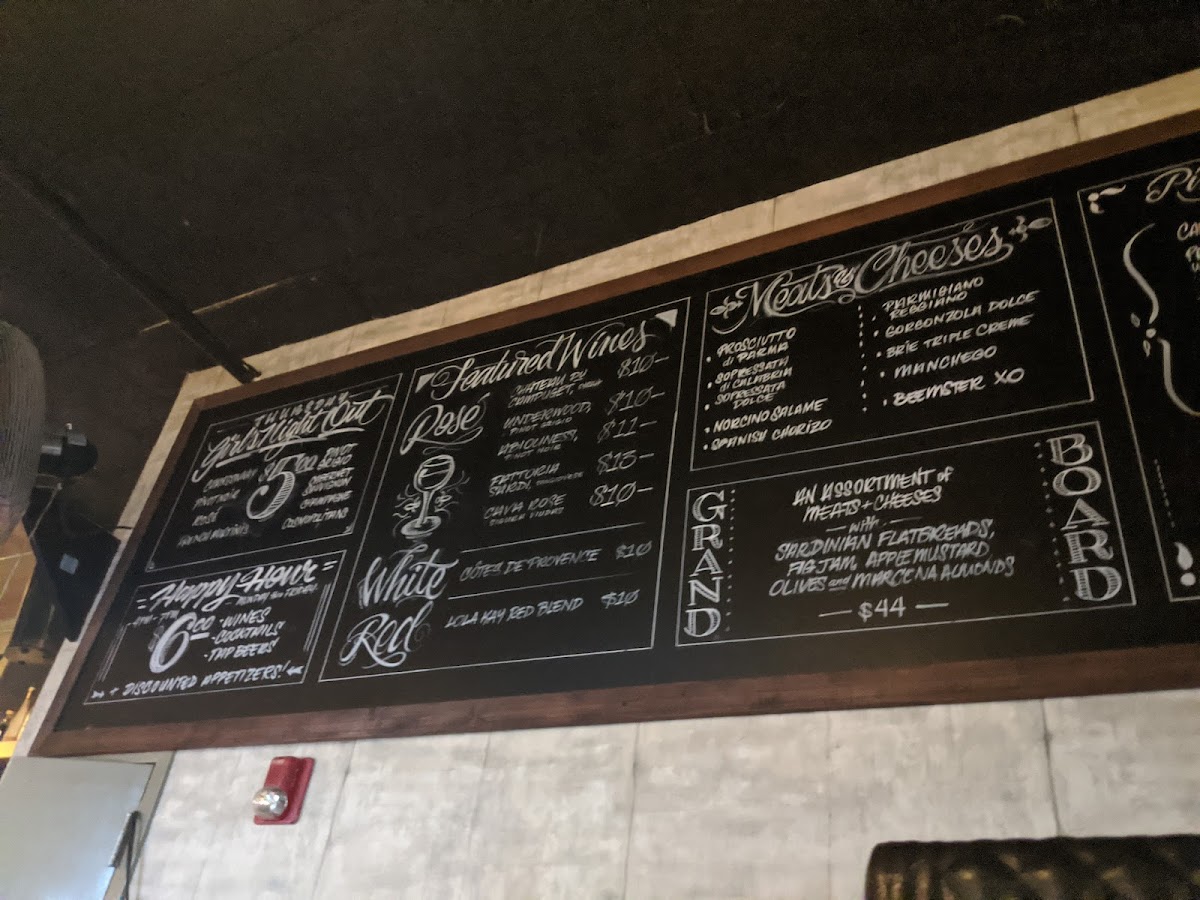 THURSDAY
Girls Night Out
CHARDONNAY
PINOT NOIR
ROSÉ
$5.00
PINOT
GRIGIO
CABERNET
SAUVIGNON
CHAMPAGNE
COSMOPOLITANS
Happy Hour
MONDAY thru FRIDAY
4PM - 7PM
6.00
- WINES
- COCKTAILS
- TAP BEERS
+ DISCOUNTED APPETIZERS!
Featured Wines
Rosé
CHATEAU DU
CAMPUGET, $10-
UNDERWOOD, $10-
PINOT GRIGIO
$11-
PINOT NOIR
FATTORIA
SARDI, $13-
CAVA ROSE $10-
White
CÔTES DE PROVENCE $10
Red
LOLA KAY RED BLEND $10
Meats & Cheeses
• PROSCIUTTO
di PARMA
• SOPRESSATA
di CALABRIA
• SOPRESSATA
DOLCE
• NORCINO SALAME
• SPANISH CHORIZO
• PARMIGIANO
REGGIANO
• GORGONZOLA DOLCE
• BRIE TRIPLE CREME
• MANCHEGO
• BEEMSTER XO
GRAND
AN ASSORTMENT of
MEATS + CHEESES
— with —
SARDINIAN FLATBREADS,
FIG JAM, APPLE MUSTARD,
OLIVES and MARCONA ALMONDS
— $44 —
BOARD